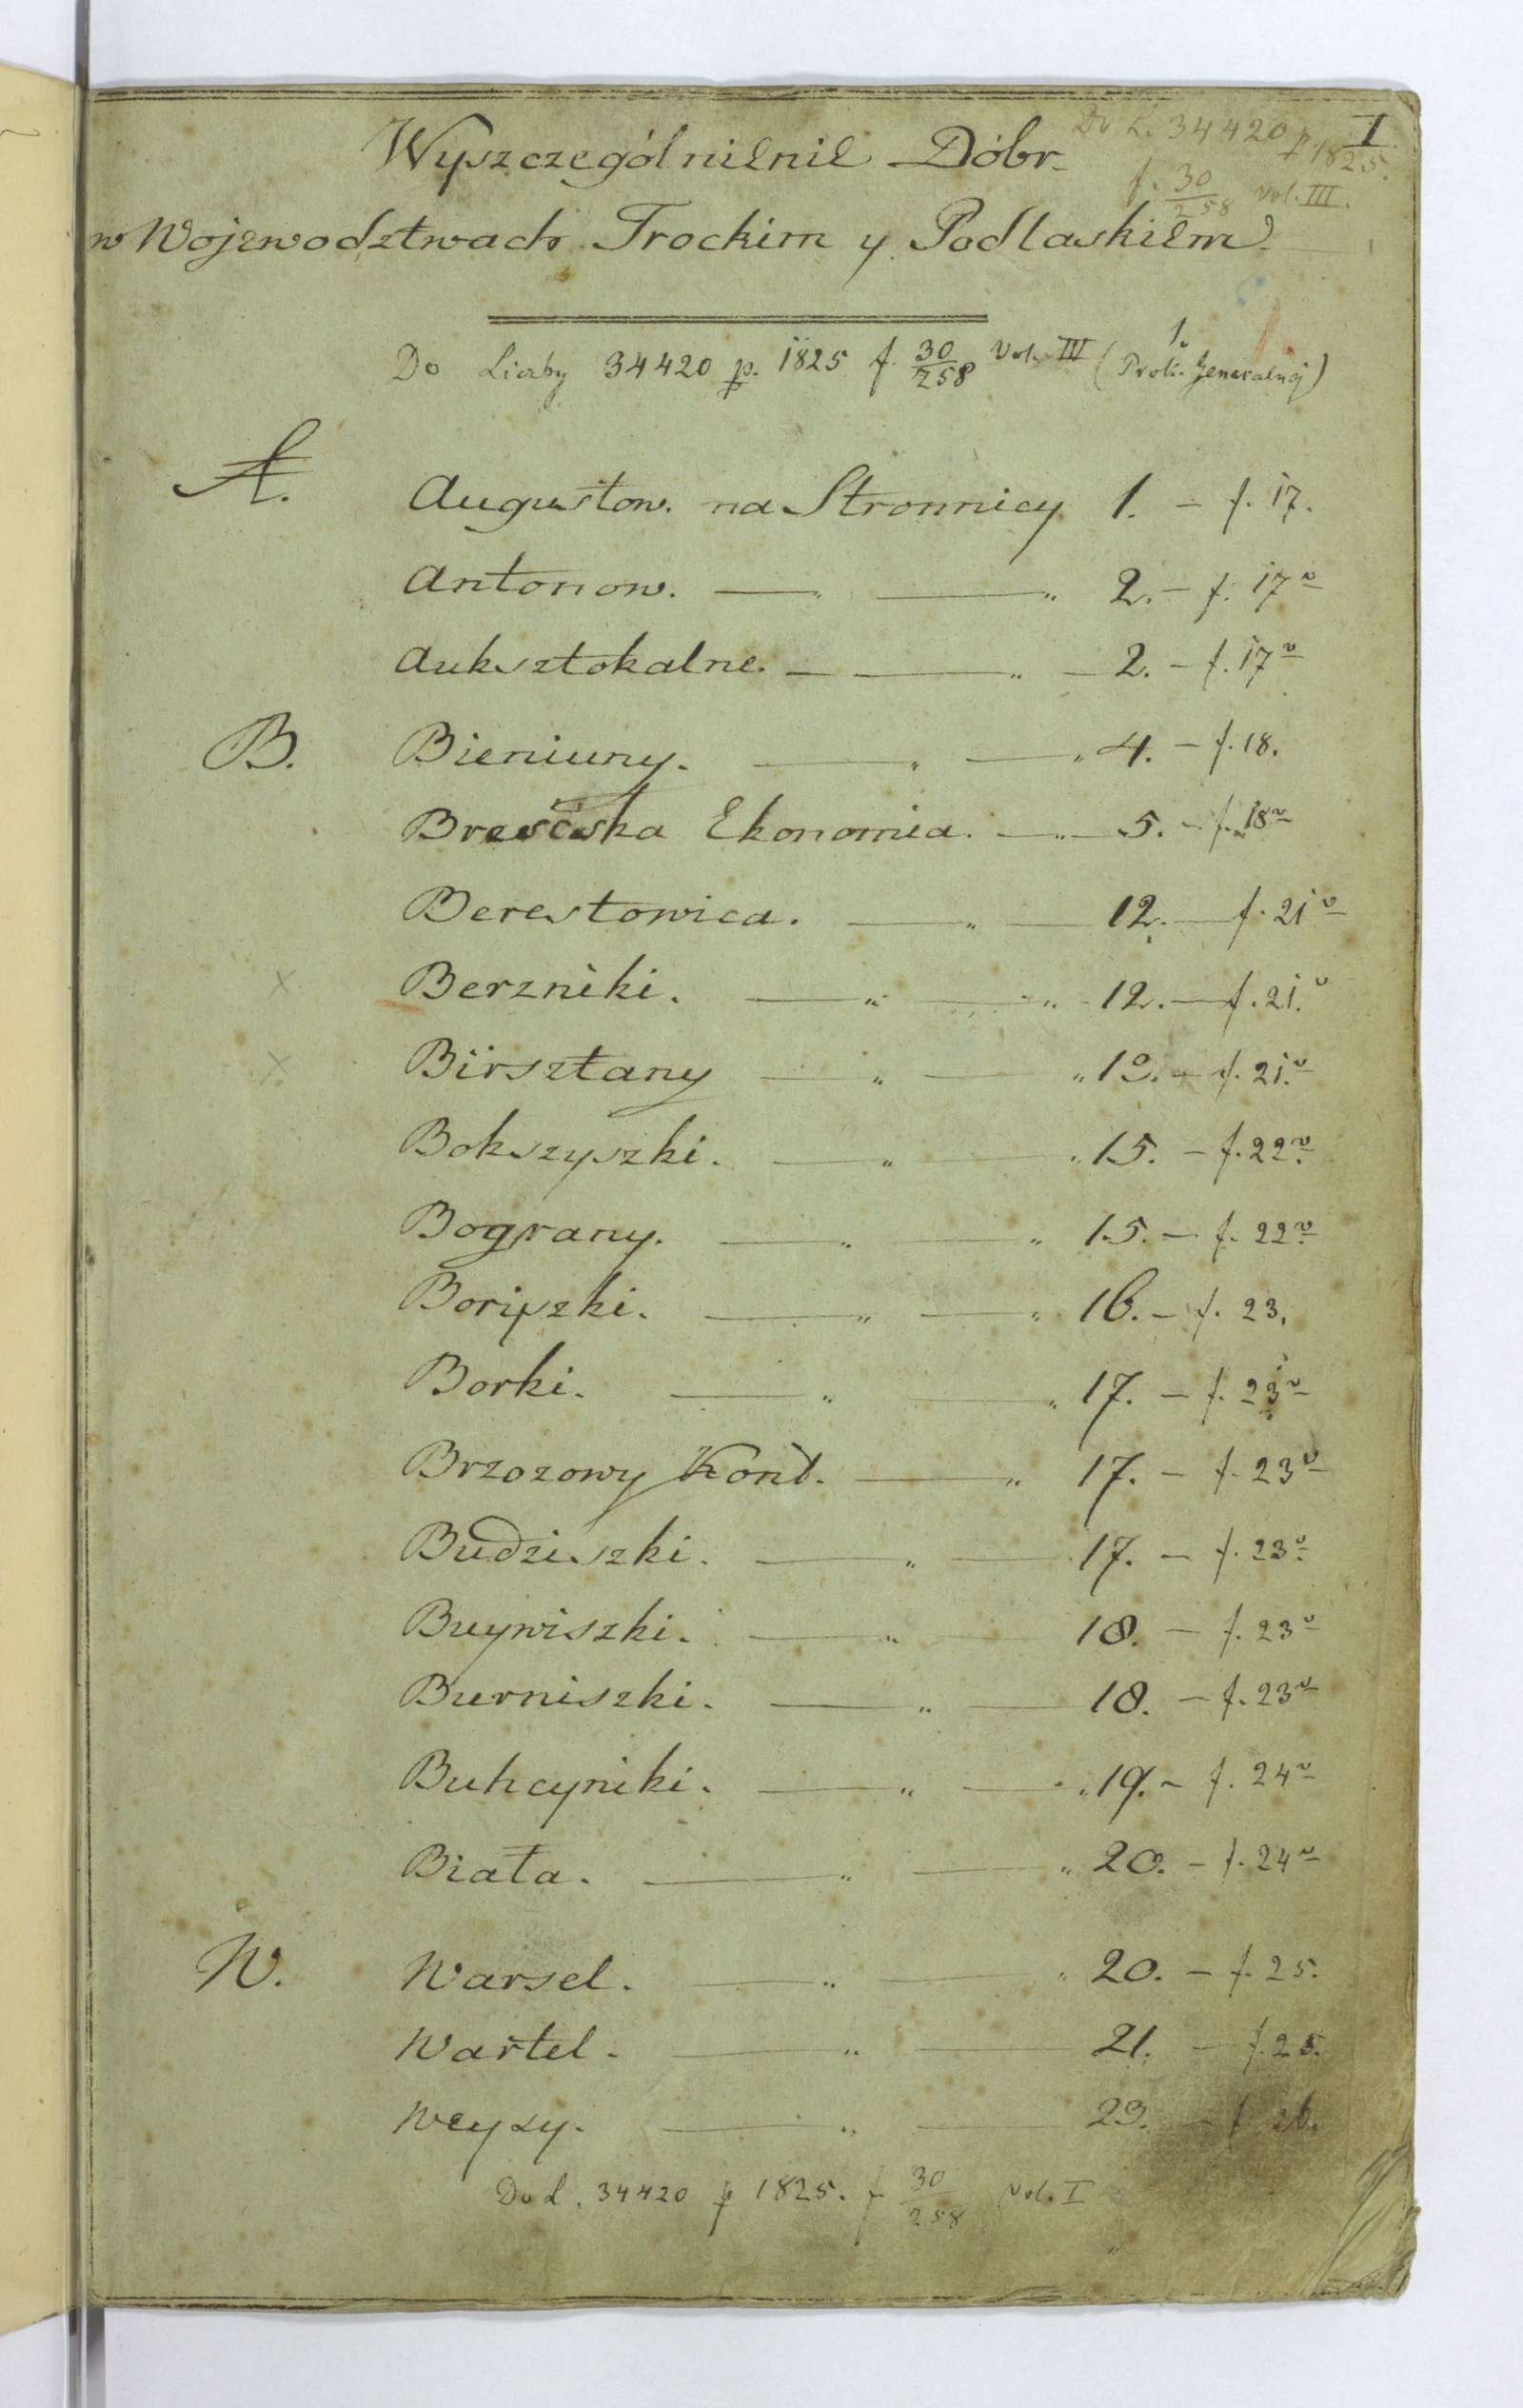 Do L. 34420 p. 1825. I
f. 30/258 vol. III.
Wyszczególnienie Dóbr
w Wojewodztwach Trockim y Podlaskiem
Do Liczby 34420 p. 1825 f. 30/258 Vol. III (Prok. Generalnej)
A. Augustow. na Stronnicy 1. – f. 17.
Antonow. — „ — „ 2. – f. 17v
Auksztokalne. — — „ — 2. – f. 17v
B. Bieniuny. — „ — „ 4. – f. 18.
Brescska Ekonomia. — „ — 5. – f. 18v
Berestowica. — „ — 12. — f. 21v
x Berzniki. — „ — „ 12. — f. 21.v
x Birsztany — „ — „ 13. – f. 21.v
Bokszyszki. — „ — „ 15. – f. 22v.
Bograny. — „ — „ 15. – f. 22v.
Boriszki. — „ — „ 16. – f. 23.
Borki. — „ — „ 17. – f. 23v
Brzozowy Kont. — „ 17. – f. 23v
Budziszki. — „ — 17. – f. 23v.
Buywiszki. — „ — 18. – f. 23v
Burniszki. — „ — 18. – f. 23v
Buhcyniki. — „ — „ 19. – f. 24v
Biała. — „ — „ 20. – f. 24v
W. Warsel. — „ — „ 20. – f. 25.
Wartel. — „ — 21. – f. 25.
Weysy. — „ — 23. – f. 26.
Do L. 34420 p 1825. f 30/258 vol. I